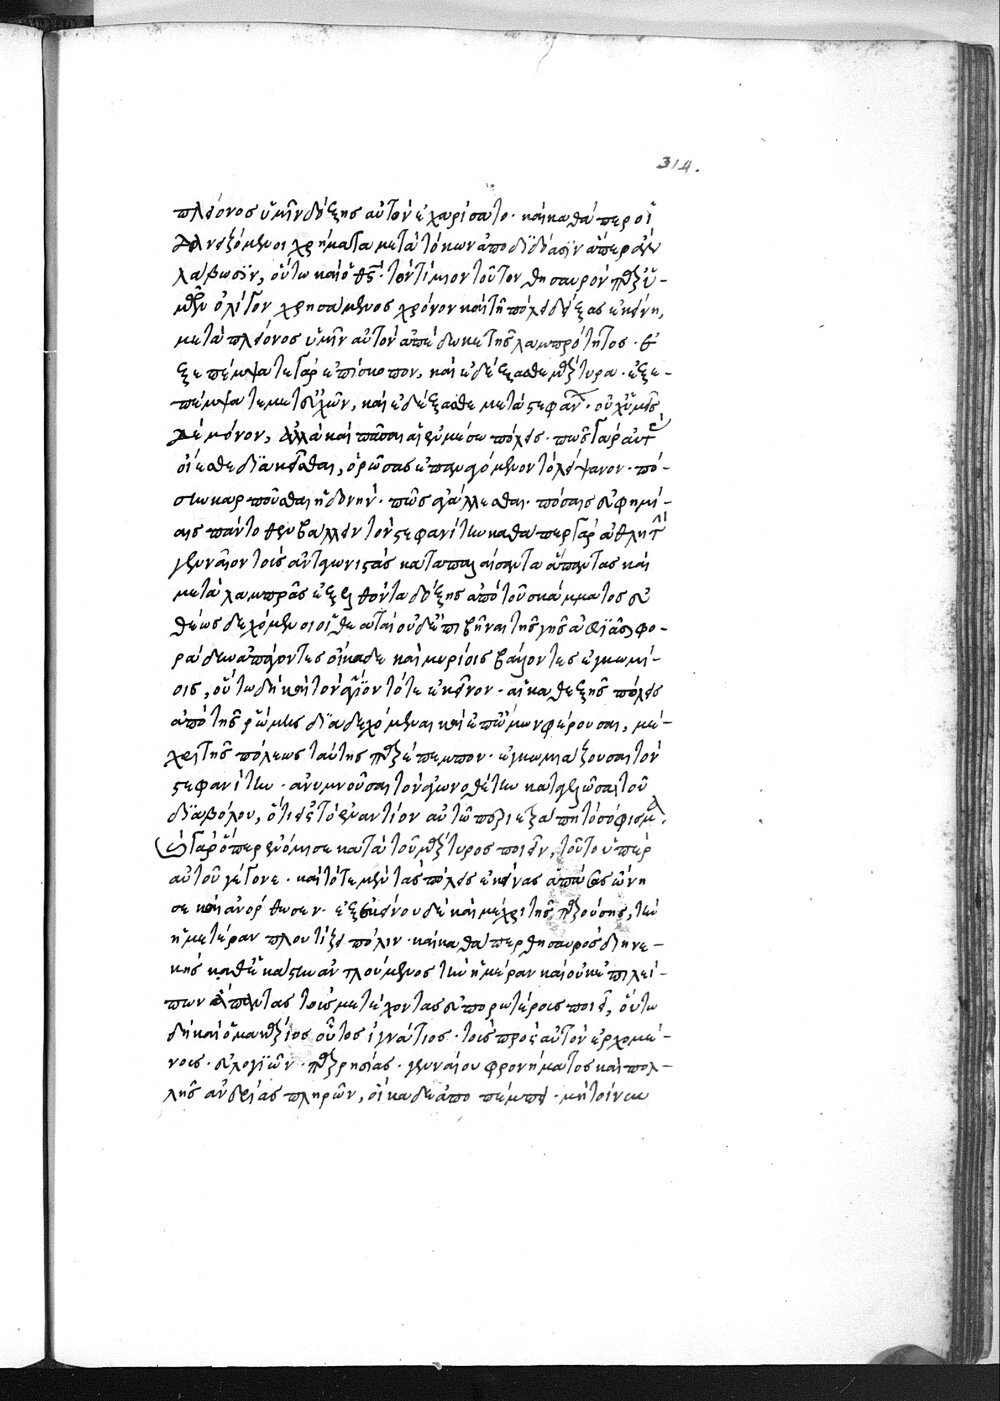 314.
πλείονος ὑμῖν δόξης αὐτὸν ἐχαρίσατο· καὶ καθάπερ οἱ
δανειζόμενοι χρήματα μετὰ τόκων ἀποδιδόασιν ἅπερ ἂν
λάβωσιν, οὕτω καὶ ὁ θς· τὸν τίμιον τοῦτον θησαυρὸν παρ' ὑ-
μῶν ὀλίγον χρησάμενος χρόνον καὶ τῇ πόλει δείξας ἐκείνῃ,
μετὰ πλείονος ὑμῖν αὐτὸν ἀπέδωκε τῆς λαμπρότητος· ἐ
ξεπέμψατε γὰρ ἐπίσκοπον, καὶ ἐδέξασθε μάρτυρα· ἐξε-
πέμψατε μετ' εὐχῶν, καὶ ἐδέξασθε μετὰ στεφάν· οὐχ ὑμεῖς
δὲ μόνον, ἀλλὰ καὶ πᾶσαι αἱ ἐν μέσω πόλεις· πῶς γὰρ αὐτὰς
οἴεσθε διακεῖσθαι, ὁρώσας ἐπαναγόμενον τὸ λείψανον· πό-
σην καρποῦσθαι ἡδονήν· πῶς ἀγάλλεσθαι· πόσαις εὐφημί-
αις πάντοθεν βάλλειν τὸν στεφανίτην καθάπερ γὰρ ἀθλητὴν
γενναῖον τοὺς ἀνταγωνιστὰς καταπαλαίσαντα ἅπαντας καὶ
μετὰ λαμπρᾶς ἐξελθόντα δόξης ἀπὸ τοῦ σκάμματος εὐ
θέως δεχόμενοι οἱ θεαταὶ οὐδὲ ἐπιβῆναι τῆς γῆς ἀφιᾶσι φο-
ράδην ἀπάγοντες οἴκαδε καὶ μυρίοις βάλλοντες ἐγκωμί-
οις, οὕτω δὴ καὶ τὸν ἅγιον τότε ἐκεῖνον· αἱ καθεξῆς πόλεις
ἀπὸ τῆς ῥώμης διαδεχόμεναι καὶ ἐπ' ὤμων φέρουσαι, μέ-
χρι τῆς πόλεως ταύτης παρέπεμπον· ἐγκωμιάζουσαι τὸν
στεφανίτην· ἀνυμνοῦσαι τὸν ἀγωνοθέτην καταγελῶσαι τοῦ
διαβόλου, ὅτι εἰς τὸ ἐναντίον αὐτῶ περιετράπη τὸ σόφισμα.
ὃ γὰρ ὅπερ ἐνόμισε κατὰ τοῦ μάρτυρος ποιεῖν, τοῦτο ὑπὲρ
αὐτοῦ γέγονε· καὶ τότε μὲν τὰς πόλεις ἐκείνας ἁπάσας ὤνη
σε καὶ ἀνόρθωσεν· ἐξ ἐκείνου δὲ καὶ μέχρι τῆς παρούσης, τὴν
ἡμετέραν πλουτίζει πόλιν· καὶ καθάπερ θησαυρὸς διηνε-
κὴς καθ' ἑκάστην ἀντλούμενος τὴν ἡμέραν καὶ οὐκ ἐπιλεί-
πων ἅπαντας τοὺς μετέχοντας εὐπορωτέρους ποιεῖ, οὕτω
δὴ καὶ ὁ μακάριος οὗτος ἰγνάτιος· τοὺς πρὸς αὐτὸν ἐρχομέ-
νους· εὐλογιῶν· παρρησίας· γενναίου φρονήματος καὶ πολ-
λῆς ἀνδρίας πληρῶν, οἴκαδε ἀποπέμπει· μὴ τοίνυν